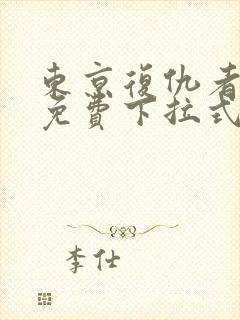 東京復仇者
免費下拉式
李仕